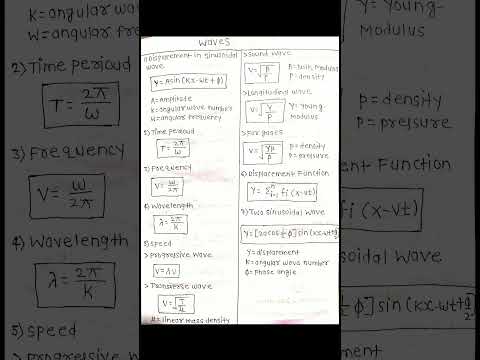 K=angular wav
W=angular freq
2)Time perioud
T= 2π/ω
3)Frequency
V= ω/2π
4)Wavelength
λ= 2π/K
5)speed
>Progressive w
Waves
1)Displacement in sinusoidal
wave
Y=Asin(Kx-wt+ϕ)
A=Amplitude
K=angular wave number
W=angular frequency
2)Time perioud
T= 2π/ω
3)Frequency
V= ω/2π
4)Wavelength
λ= 2π/K
5)speed
>Progressive wave
V=λν
>Transverse wave
V=√T/μ
μ=linear mass density
>Sound wave
V=√B/ρ B=Bulk Modulus
ρ=density
>Longitudinal wave
V=√Y/ρ Y=Young-
Modulus
>For gases
V=√γP/ρ ρ=density
P=pressure
6)Displacement Function
Y=Σⁿᵢ₌₁ fi(x-vt)
7)Two sinusoidal wave
Y=[2acos½ϕ]sin(kx-wt+ϕ/2)
Y=displacement
K=angular wave number
ϕ=phase angle
Y=Young-
Modulus
ρ=density
P=pressure
ment Function
fi(x-vt)
soidal wave
½ϕ]sin(kx-wt+ϕ/2)